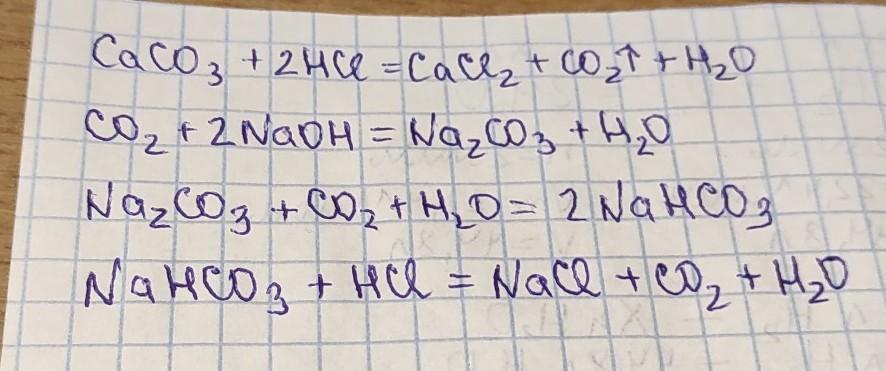 CaCO₃ + 2HCl = CaCl₂ + CO₂↑ + H₂O
CO₂ + 2NaOH = Na₂CO₃ + H₂O
Na₂CO₃ + CO₂ + H₂O = 2NaHCO₃
NaHCO₃ + HCl = NaCl + CO₂ + H₂O